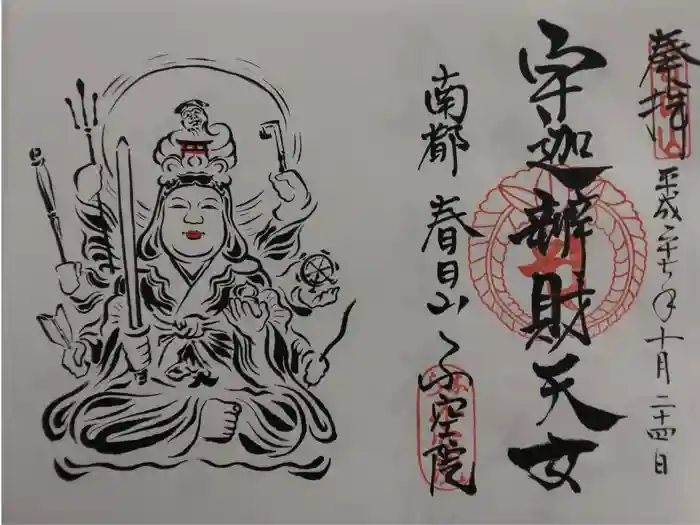 奉拝
平成二十七年十月二十四日
宇迦辨財天女
南都 春日山 不空院